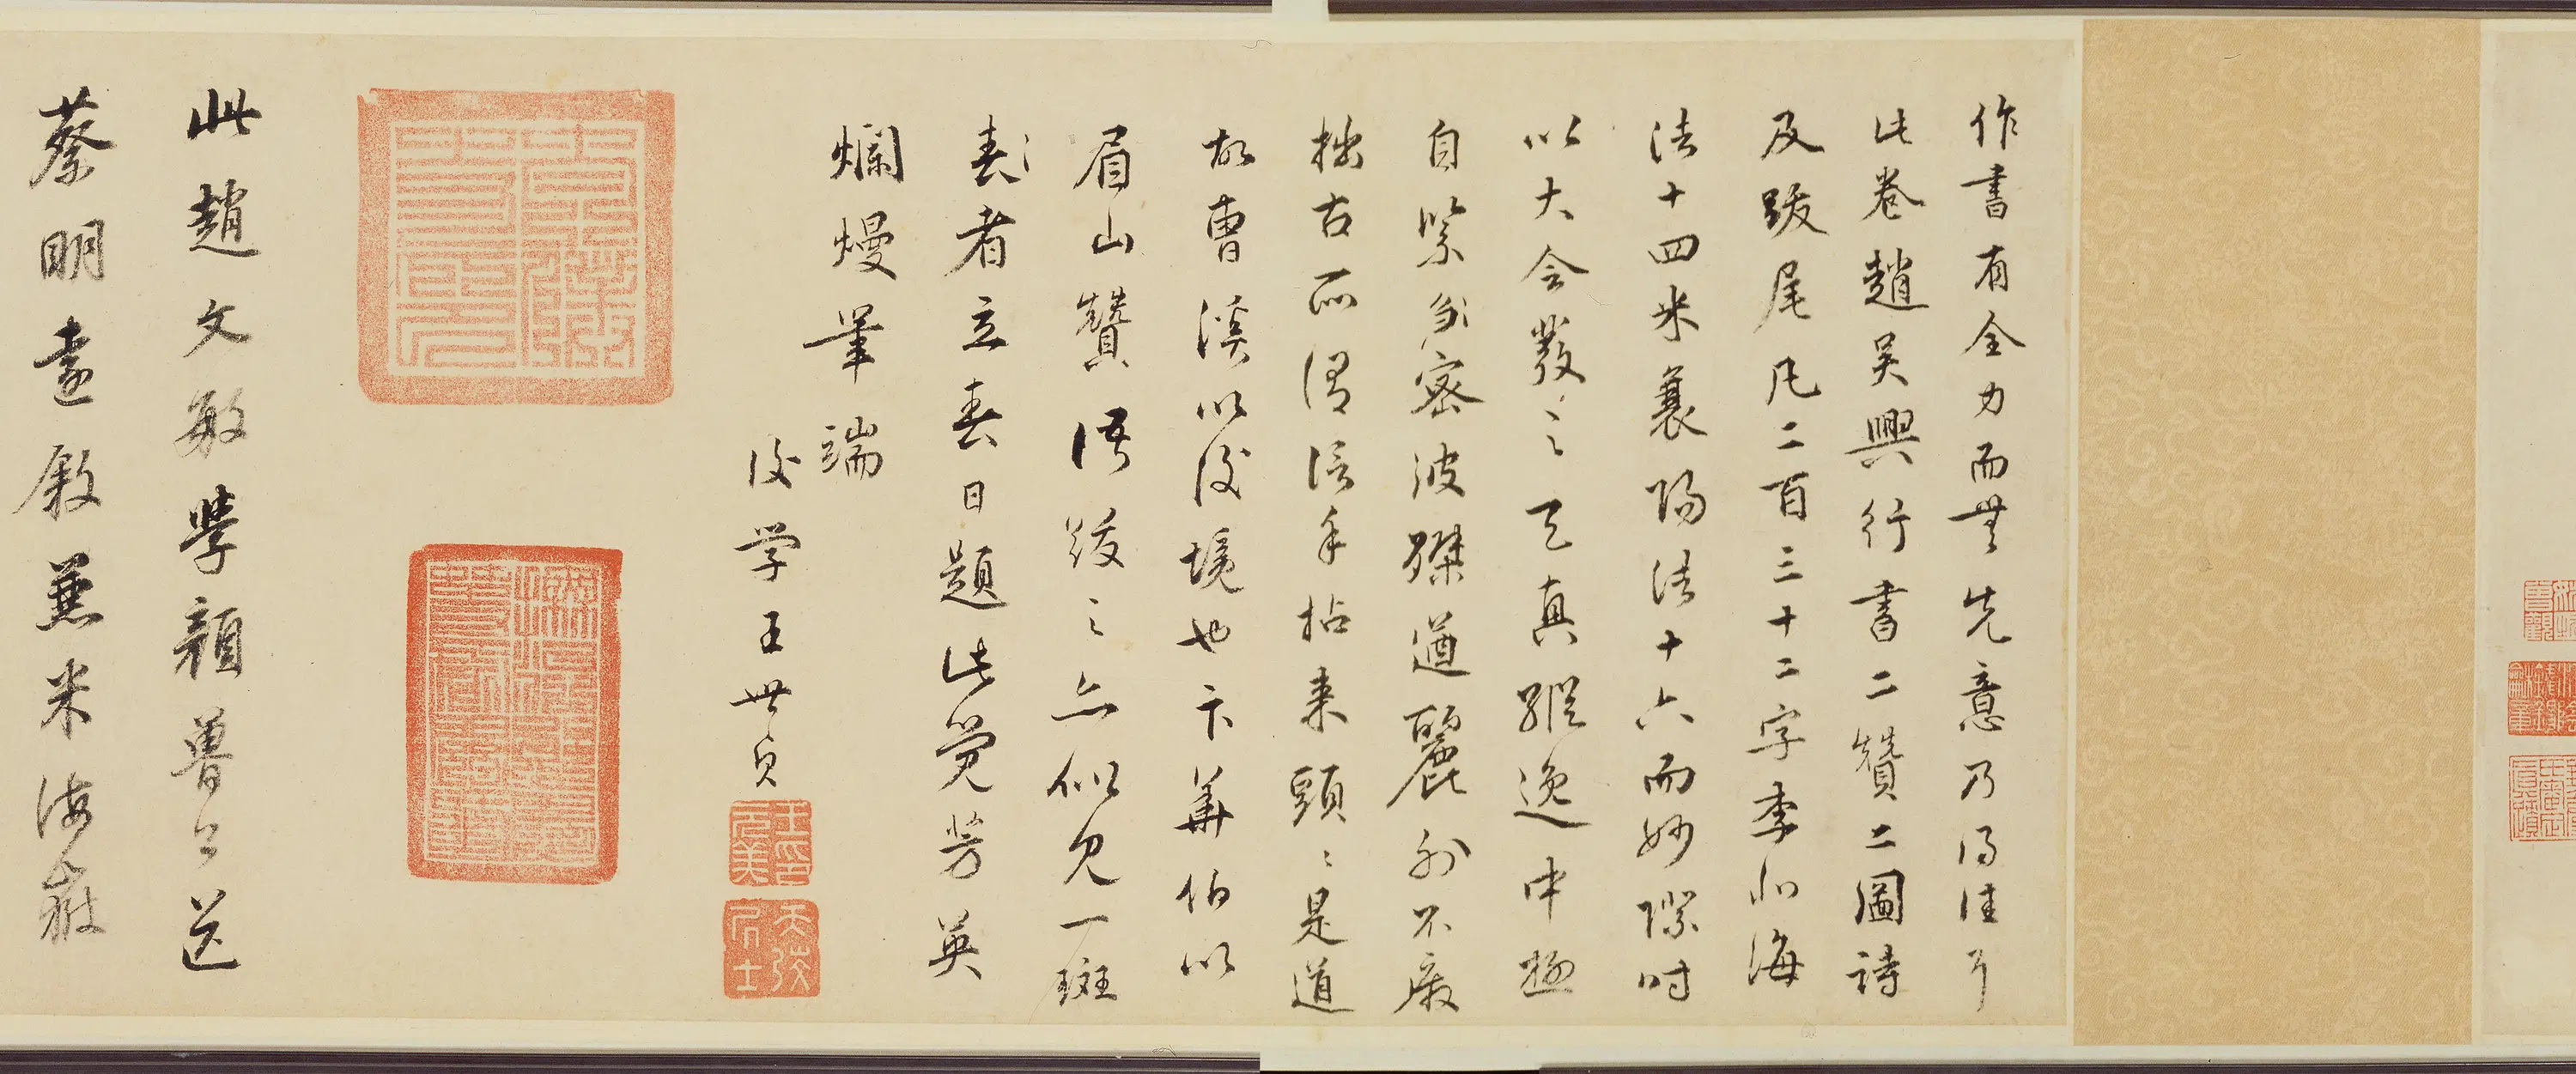 作書有全力而無先意乃得佳耳
此卷趙吳興行書二贊二圖詩
及跋尾凡二百三十二字李北海
法十四米襄陽法十六而妙際時
以大令發之天真縱逸中極
自緊密波磔遒麗外不廢
拙古所謂信手拈來頭〻是道
故曹溪以後境也卞華伯以
眉山贊語跋之亦似見一斑
春者立春日題此覺芳英
爛熳筆端
後學王世貞
王印元美
天弢居士
此趙文敏學顏魯公送
蔡明遠敘兼米海嶽